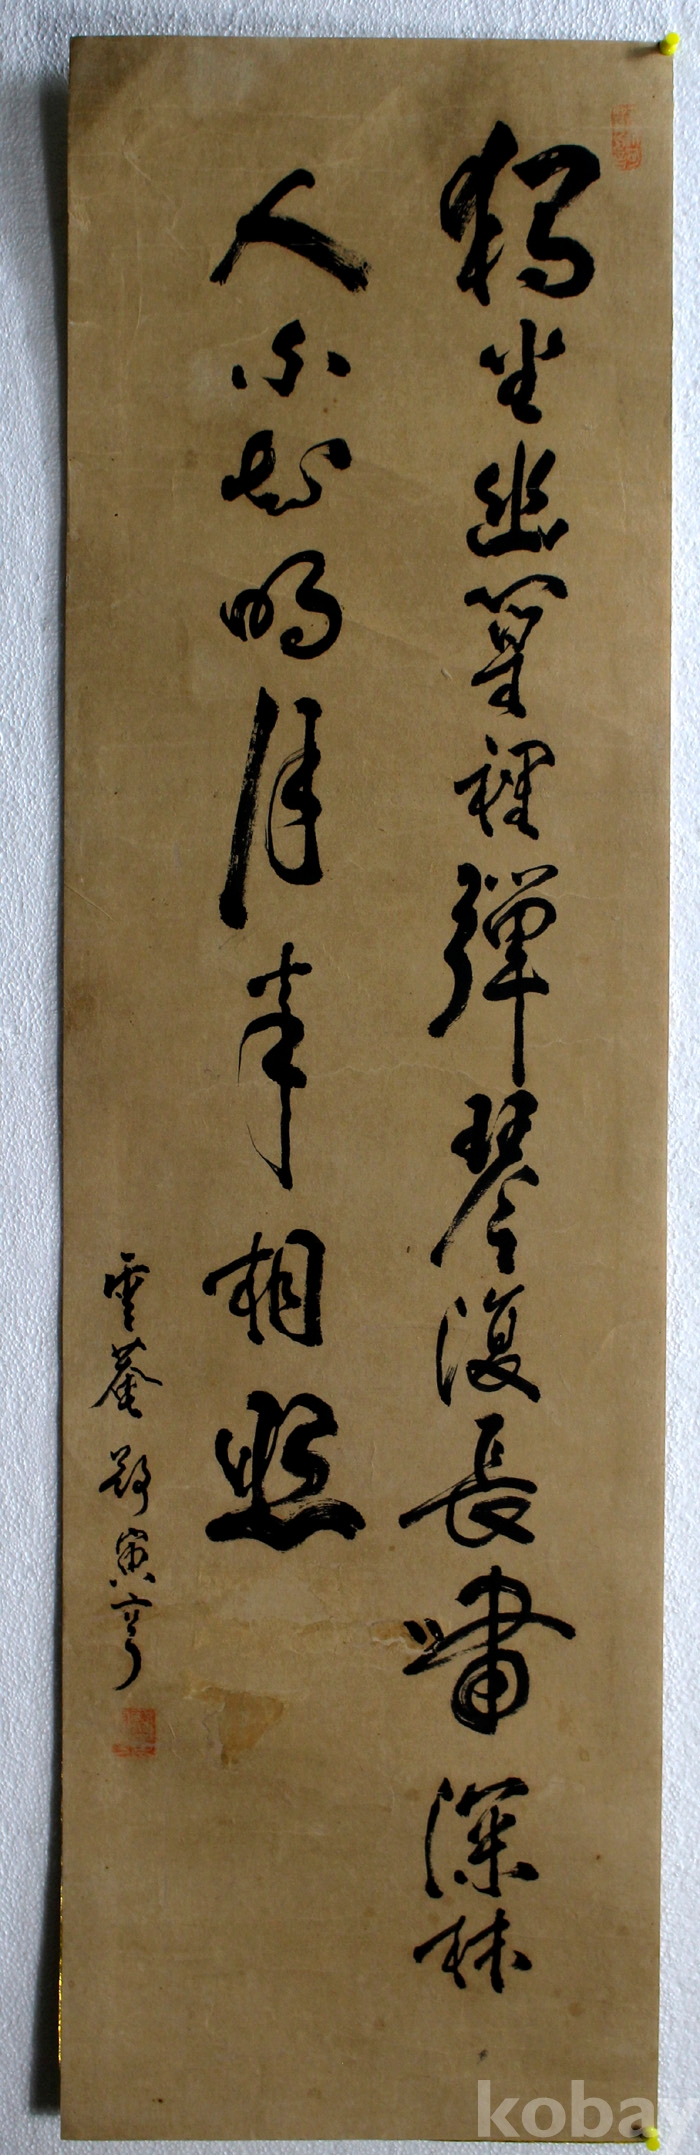 獨坐幽篁裡彈琴復長嘯深林
人不知明月来相照
雲菴 鄭寅亨
kobay